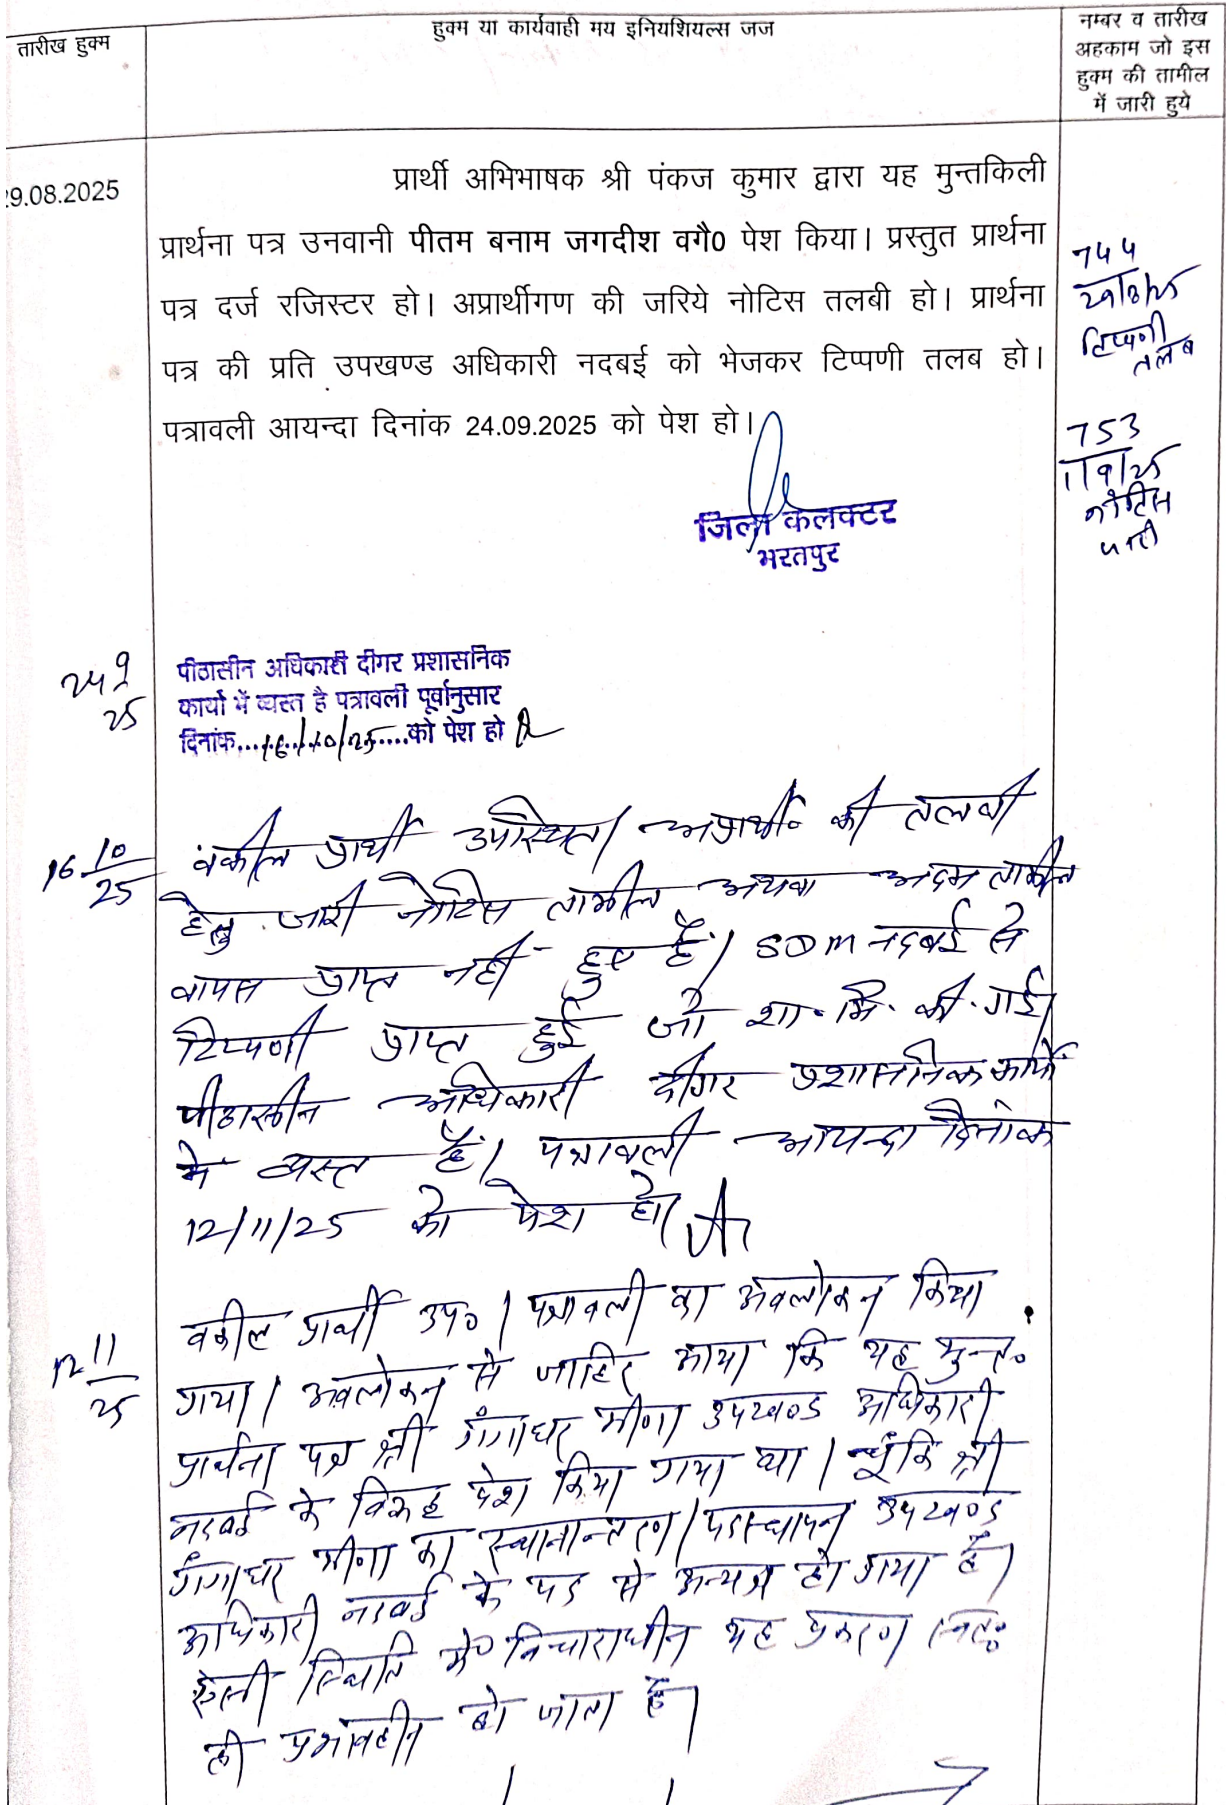 तारीख हुक्म
हुक्म या कार्यवाही मय इनियशियल्स जज
नम्बर व तारीख
अहकाम जो इस
हुक्म की तामील
में जारी हुये
29.08.2025
प्रार्थी अभिभाषक श्री पंकज कुमार द्वारा यह मुन्तकिली
प्रार्थना पत्र उनवानी पीतम बनाम जगदीश वगै0 पेश किया। प्रस्तुत प्रार्थना
पत्र दर्ज रजिस्टर हो। अप्रार्थीगण की जरिये नोटिस तलबी हो। प्रार्थना
पत्र की प्रति उपखण्ड अधिकारी नदबई को भेजकर टिप्पणी तलब हो।
पत्रावली आयन्दा दिनांक 24.09.2025 को पेश हो।
744
29/8/25
टिप्पणी
तलब
753
1/9/25
नोटिस
जिला कलक्टर
भरतपुर
24 9
25
पीठासीन अधिकारी दीगर प्रशासनिक
कार्यो में व्यस्त है पत्रावली पूर्वानुसार
दिनांक....16/10/25....को पेश हो
16 10
25
वकील प्रार्थी उपस्थित। अप्रार्थी० की तलबी
हेतु जारी नोटिस तामील अथवा अदम तामील
वापस प्राप्त नहीं हुए हैं। SDM नदबई से
टिप्पणी प्राप्त हुई जो शा.मि. की गई।
पीठासीन अधिकारी दीगर प्रशासनिक कार्यों
में व्यस्त हैं। पत्रावली आयन्दा दिनांक
12/11/25 को पेश हो।
12 11
25
वकील प्रार्थी उप० । पत्रावली का अवलोकन किया
गया। अवलोकन से जाहिर आया कि यह मुन्त०
प्रार्थना पत्र श्री गंगाधर मीणा उपखण्ड अधिकारी
नदबई के विरुद्ध पेश किया गया था। चूंकि श्री
गंगाधर मीणा का स्थानान्तरण/पदस्थापन उपखण्ड
अधिकारी नदबई के पद से अन्यत्र हो गया है।
ऐसी स्थिति में विचाराधीन यह प्रकरण स्वत:
ही प्रभावहीन हो जाता है।